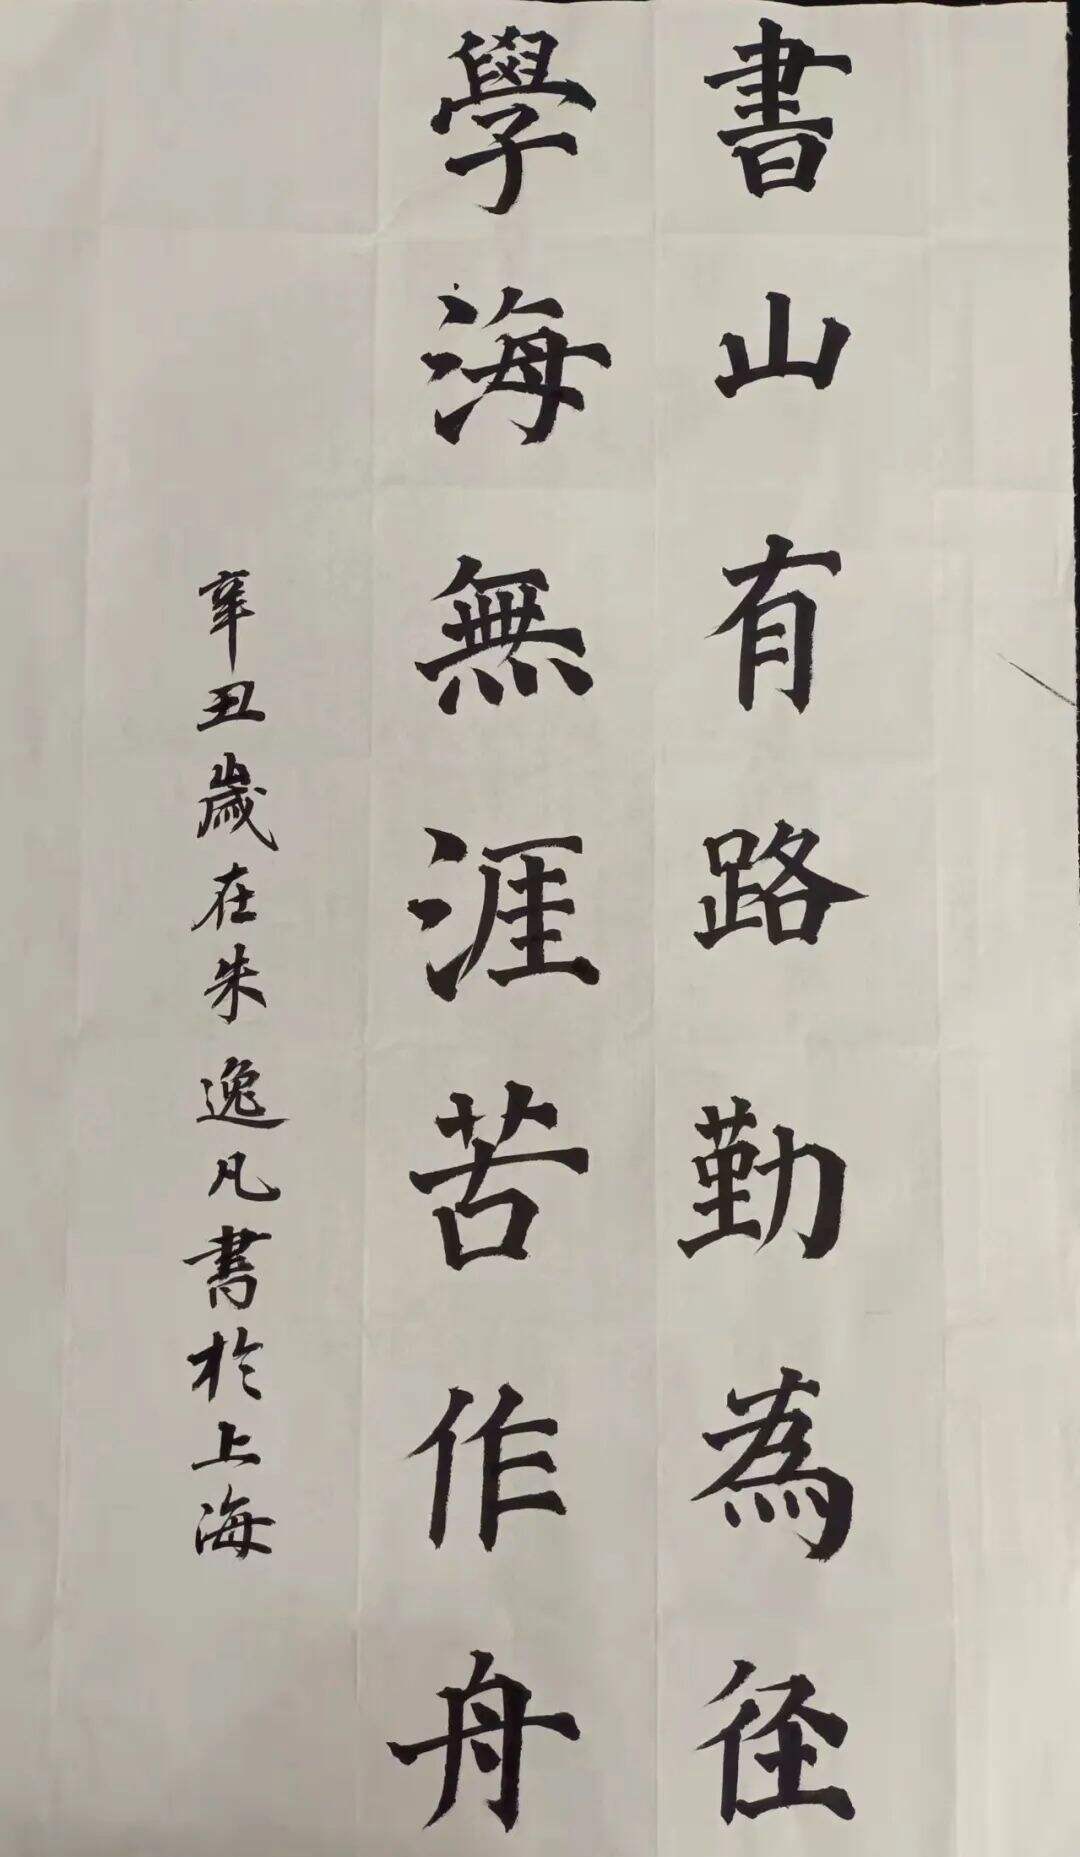 書山有路勤為径
學海無涯苦作舟
辛丑歲在朱逸凡書於上海